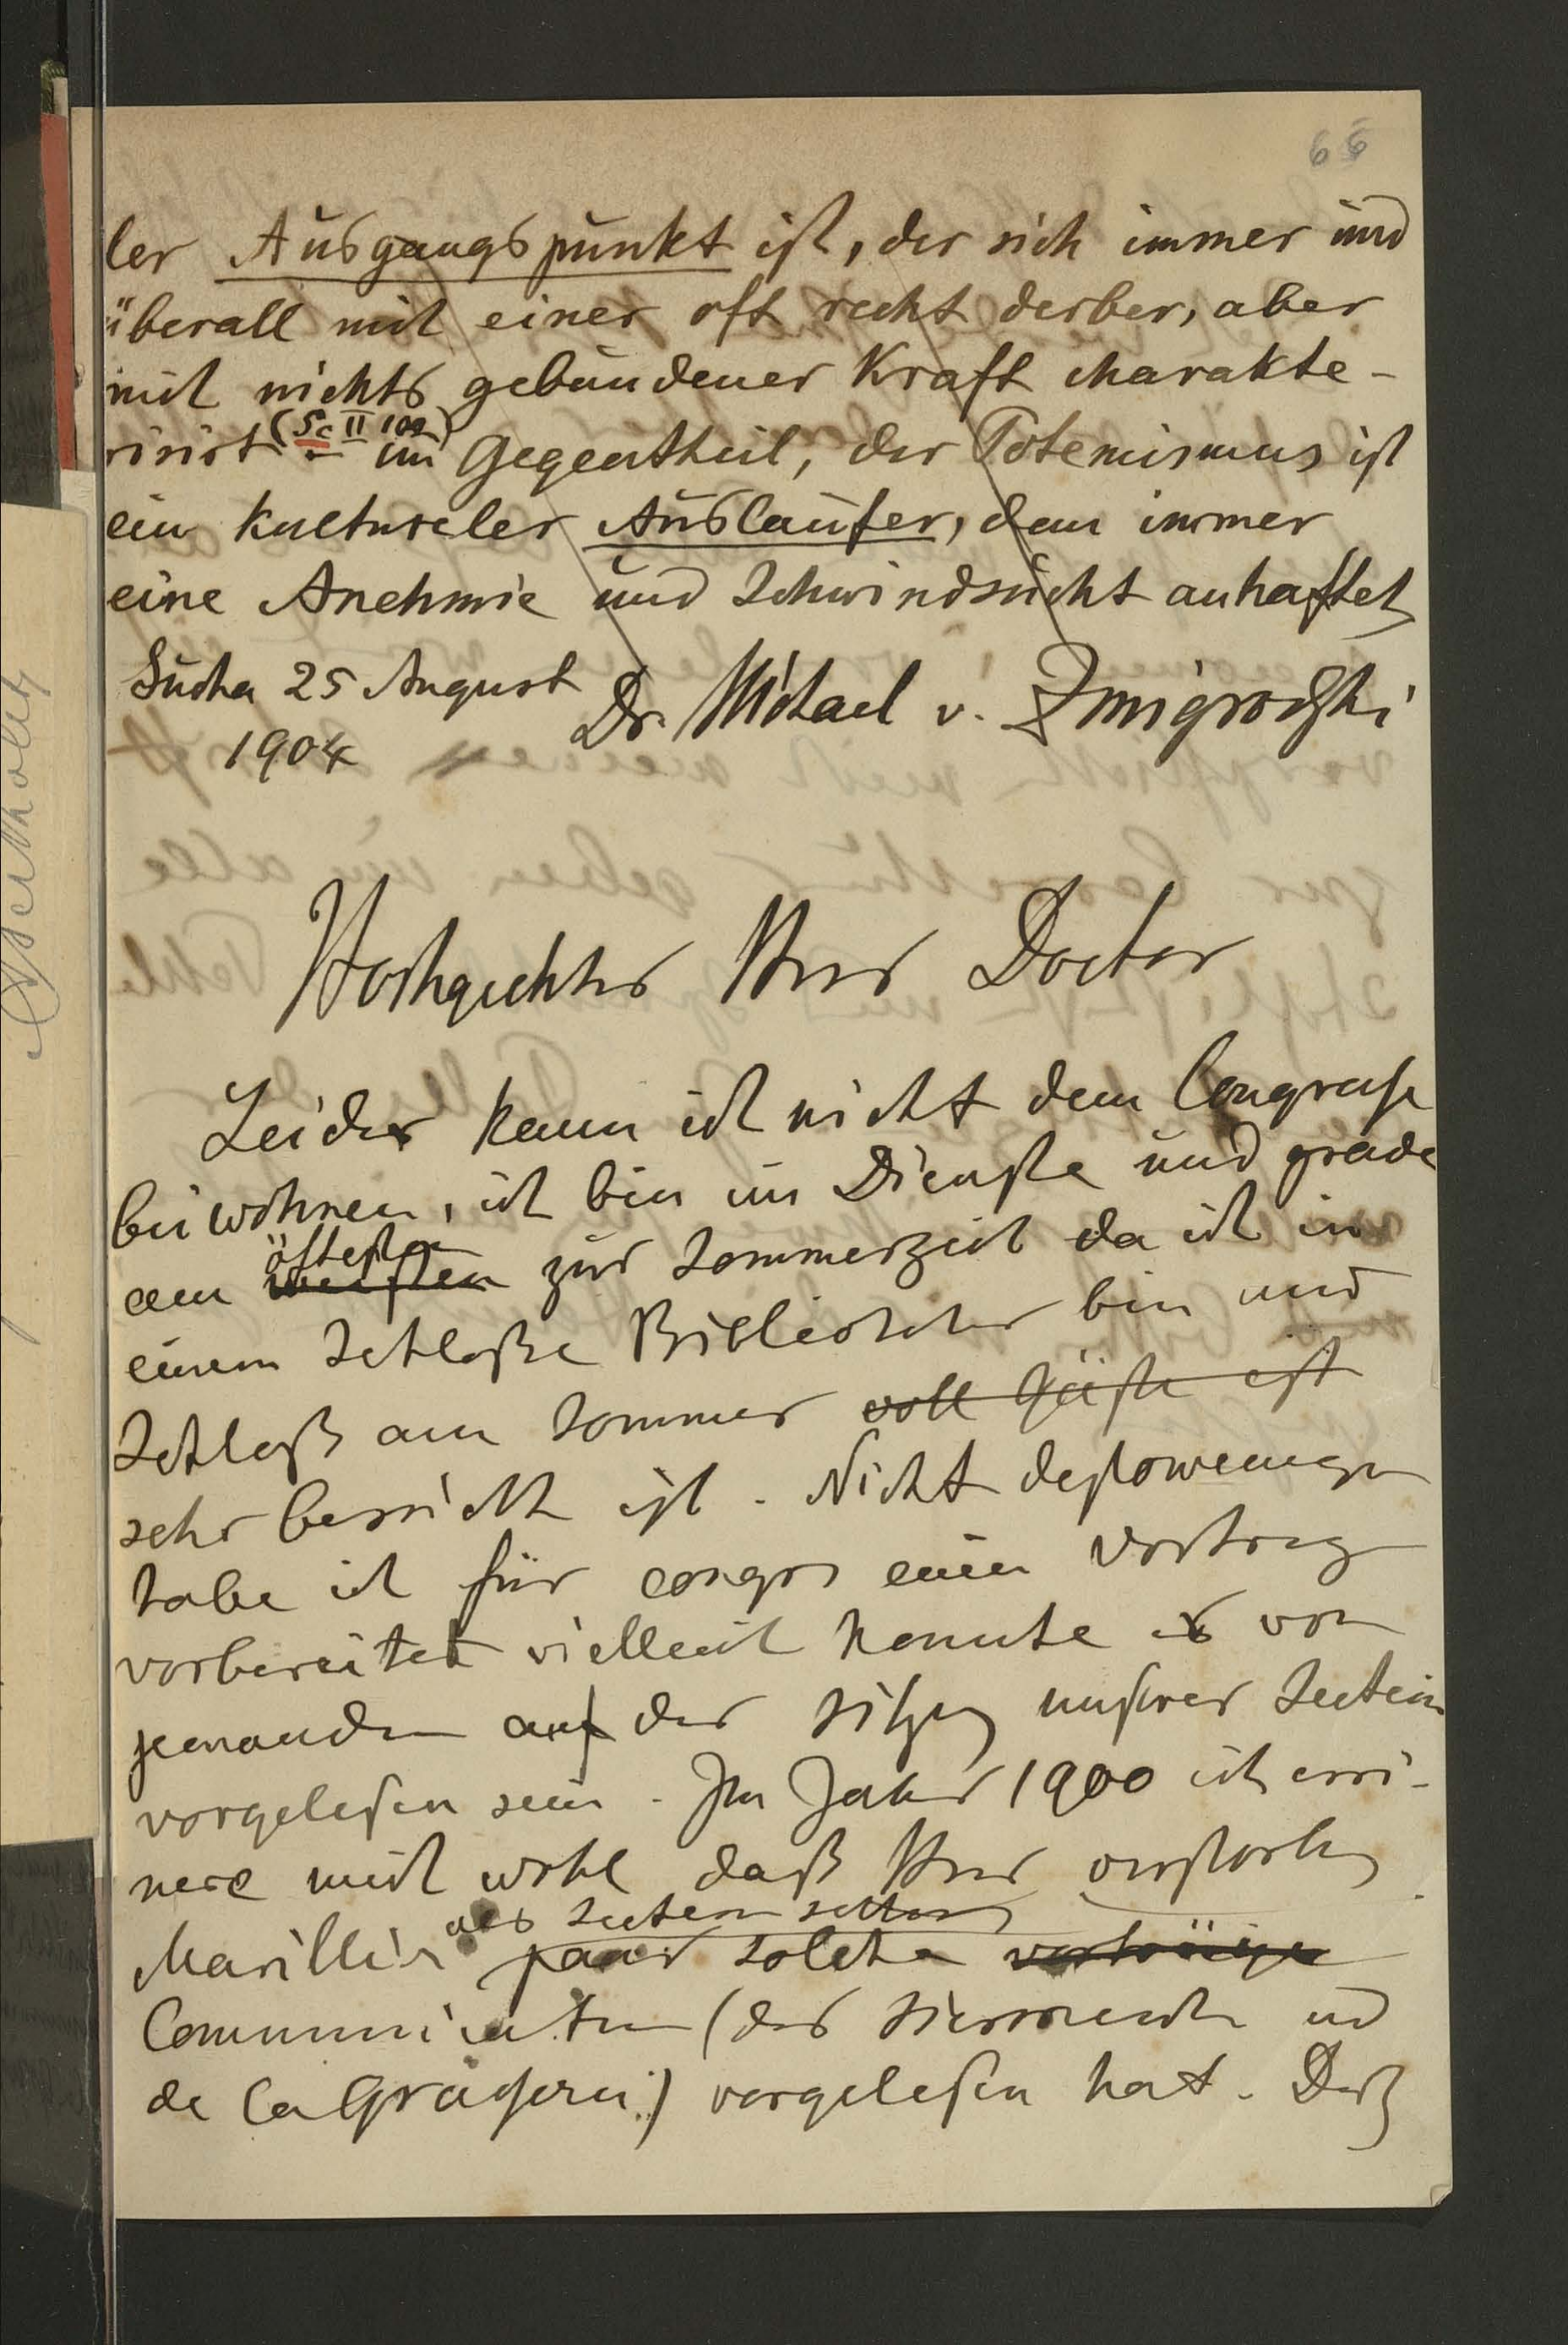 66
ler Ausgangspunkt ist, der sich immer und
überall mit einer oft recht derber, aber
mit nichts gebundener Kraft charakte-
risirt (Sc II 102) – im Gegentheil, der Totemismus ist
ein kultureler Auslaufer, dem immer
eine Anehmie und Schwindsucht anhaftet
Sucha 25 August
1904
Dr. Michael v. Zmigrodzki
Hochgeehter Herr Doctor
Leider kann ich nicht dem Congresse
beiwohnen, ich bin im Dienste und grade
am öftesten zur Sommerzeit da ich in
einem Schloße Bibliothekar bin und
Schloß am Sommer voll Gäste ist
sehr besucht ist. Nicht destoweniger
habe ich für congres einen Vortrag
vorbereitet vielleicht konnte es von
jemanden auf der Sitzung unserer Section
vorgelesen sein. Im Jahre 1900 ich erri-
nere mich wohl daß Herr verstorbene
Marillier als
paar solche vorträge
Communication (der und
de la Grasserie) vorgelesen hat. Daß